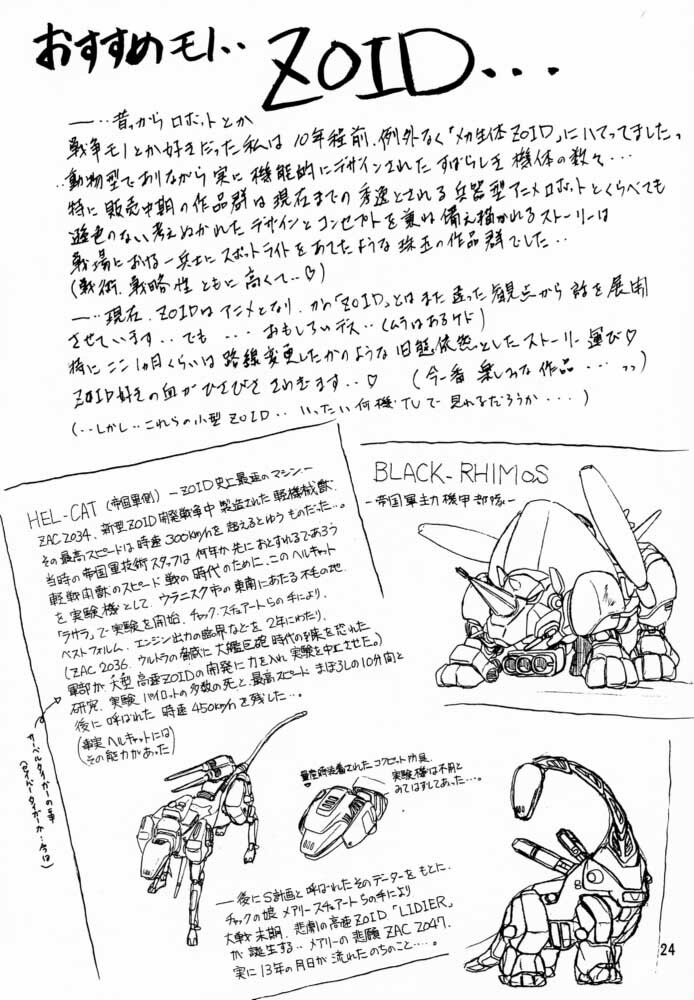 おすすめモノ‥ ZOID...
―‥昔っからロボットとか
戦争モノとか好きだった私は10年程前、例外なく「メカ生体ZOID」にハマってましたっ
‥動物型でありながら実に機能的にデザインされたすばらしき機体の数々…
特に販売中期の作品群は現在までの秀逸とされる兵器型アニメロボットとくらべても
遜色のない考えぬかれたデザインとコンセプトを兼ね備え描かれるストーリーは
戦場における一兵士にスポットライトをあてたような珠玉の作品群でした‥
(戦術、戦略性ともに高くて‥♡)
―‥現在、ZOIDはアニメとなり、かの「ZOID」とはまた違った観点から話を展開
させています‥でも…おもしろいデス‥(ムラはあるケド)
特にここ1ヵ月くらいは路線変更したかのような旧態依然としたストーリー運び♡
ZOID好きの血がひさびささわぎます‥♡ (今一番楽しみな作品…っっ)
(‥しかし‥これらの小型ZOID‥いったい何機TVで見れるだろうか…)
HEL-CAT (帝国軍側) ―ZOID史上最速のマシン―
ZAC2034、新型ZOID開発戦争中製造された軽機械獣、
その最高スピードは時速300km/hを超えるとゆうものだった…。
当時の帝国軍技術スタッフは何年か先におとずれるであろう
軽戦闘獣のスピード戦の時代のために、このヘルキャット
を実験機として、ウラニスク市の東南にあたる不毛の地、
「ラサラ」で実験を開始、チャック、スチュアートらの手により、
ベストフォルム、エンジン出力の臨界などを2年にわたり、
(ZAC2036、ウルトラの脅威に大艦巨砲時代の到来を恐れた
軍部が、大型高速ZOIDの開発に力を入れ実験を中止させた。)
研究、実験パイロットの多数の死と、最高スピードまぼろしの10分間と
後に呼ばれた時速450km/hを残した…。
(事実ヘルキャットには
その能力があった)
サーベルタイガーの事
(セイバータイガーか…今は)
BLACK-RHIMOS
―帝国軍主力機甲部隊―
量産時装着されたコクピット防具、
実験機は不用と
みてはずしてあった…。
―後にS計画と呼ばれたそのデーターをもとに、
チャックの娘メアリースチュアートらの手により
大戦末期、悲劇の高速ZOID「LIDIER」
が誕生する‥メアリーの悲願ZAC2047、
実に13年の月日が流れたのちのこと…。
24